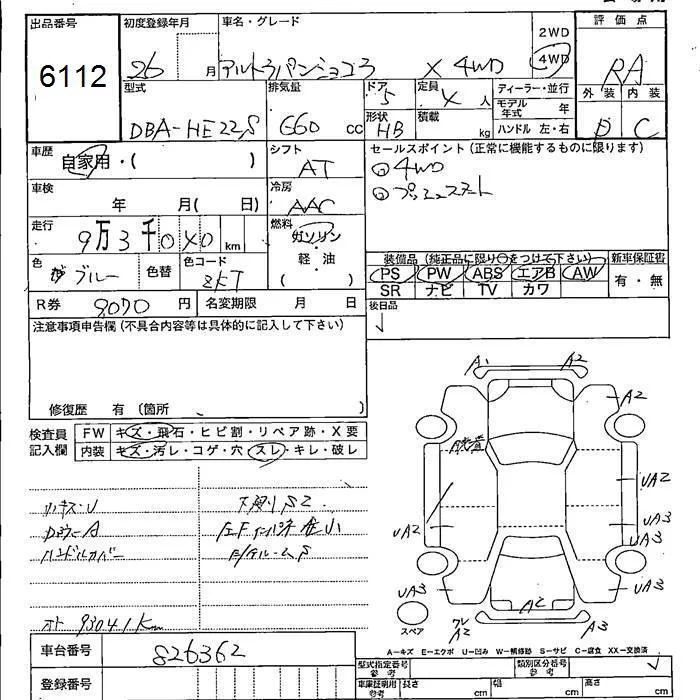 出品番号
6112
初度登録年月
26 月
車名・グレード
アルトラパンショコラ X 4WD
2WD
4WD
評価点
RA
外装 内装
D C
型式
DBA-HE22S
排気量
660 cc
ドア
5
形状
HB
定員
4 人
積載
kg
ディーラー・並行
モデル年式 年
ハンドル 左・右
車歴
自家用・( )
シフト
AT
セールスポイント(正常に機能するものに限ります)
4WD
プッシュスタート
車検
年 月( 日)
冷房
AAC
走行
9万3千040 km
燃料
ガソリン
軽・油
( )
色
ブルー
色替
色コード
ZKT
装備品 (純正品に限り○をつけて下さい)
新車保証書
PS PW ABS エアB AW
SR ナビ TV カワ
有・無
R券
9070 円
名変期限 月 日
後日品
注意事項申告欄(不具合内容等は具体的に記入して下さい)
修復歴 有 〔箇所 〕
検査員
記入欄
FW キズ・飛石・ヒビ割・リペア跡・X要
内装 キズ・汚レ・コゲ・穴・スレ・キレ・破レ
下廻りS2
ハンドルカバー
93041Km
A1 A2
A2
UA2
UA3
UA3
UA2
UA3
UA3
A2
A2
A3
スペア
A-キズ E-エクボ U-凹み W-補修跡 S-サビ C-腐食 XX-交換済
車台番号
826362
登録番号
型式指定番号
参考
類別区分番号
参考
車庫証明用
参考
長さ cm
幅 cm
高さ cm